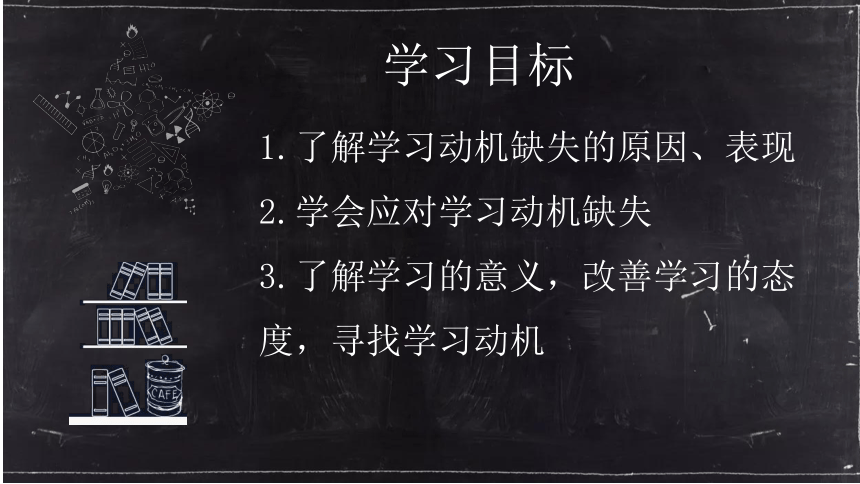 学习目标
1.了解学习动机缺失的原因、表现
2.学会应对学习动机缺失
3.了解学习的意义，改善学习的态
度，寻找学习动机
CAFE